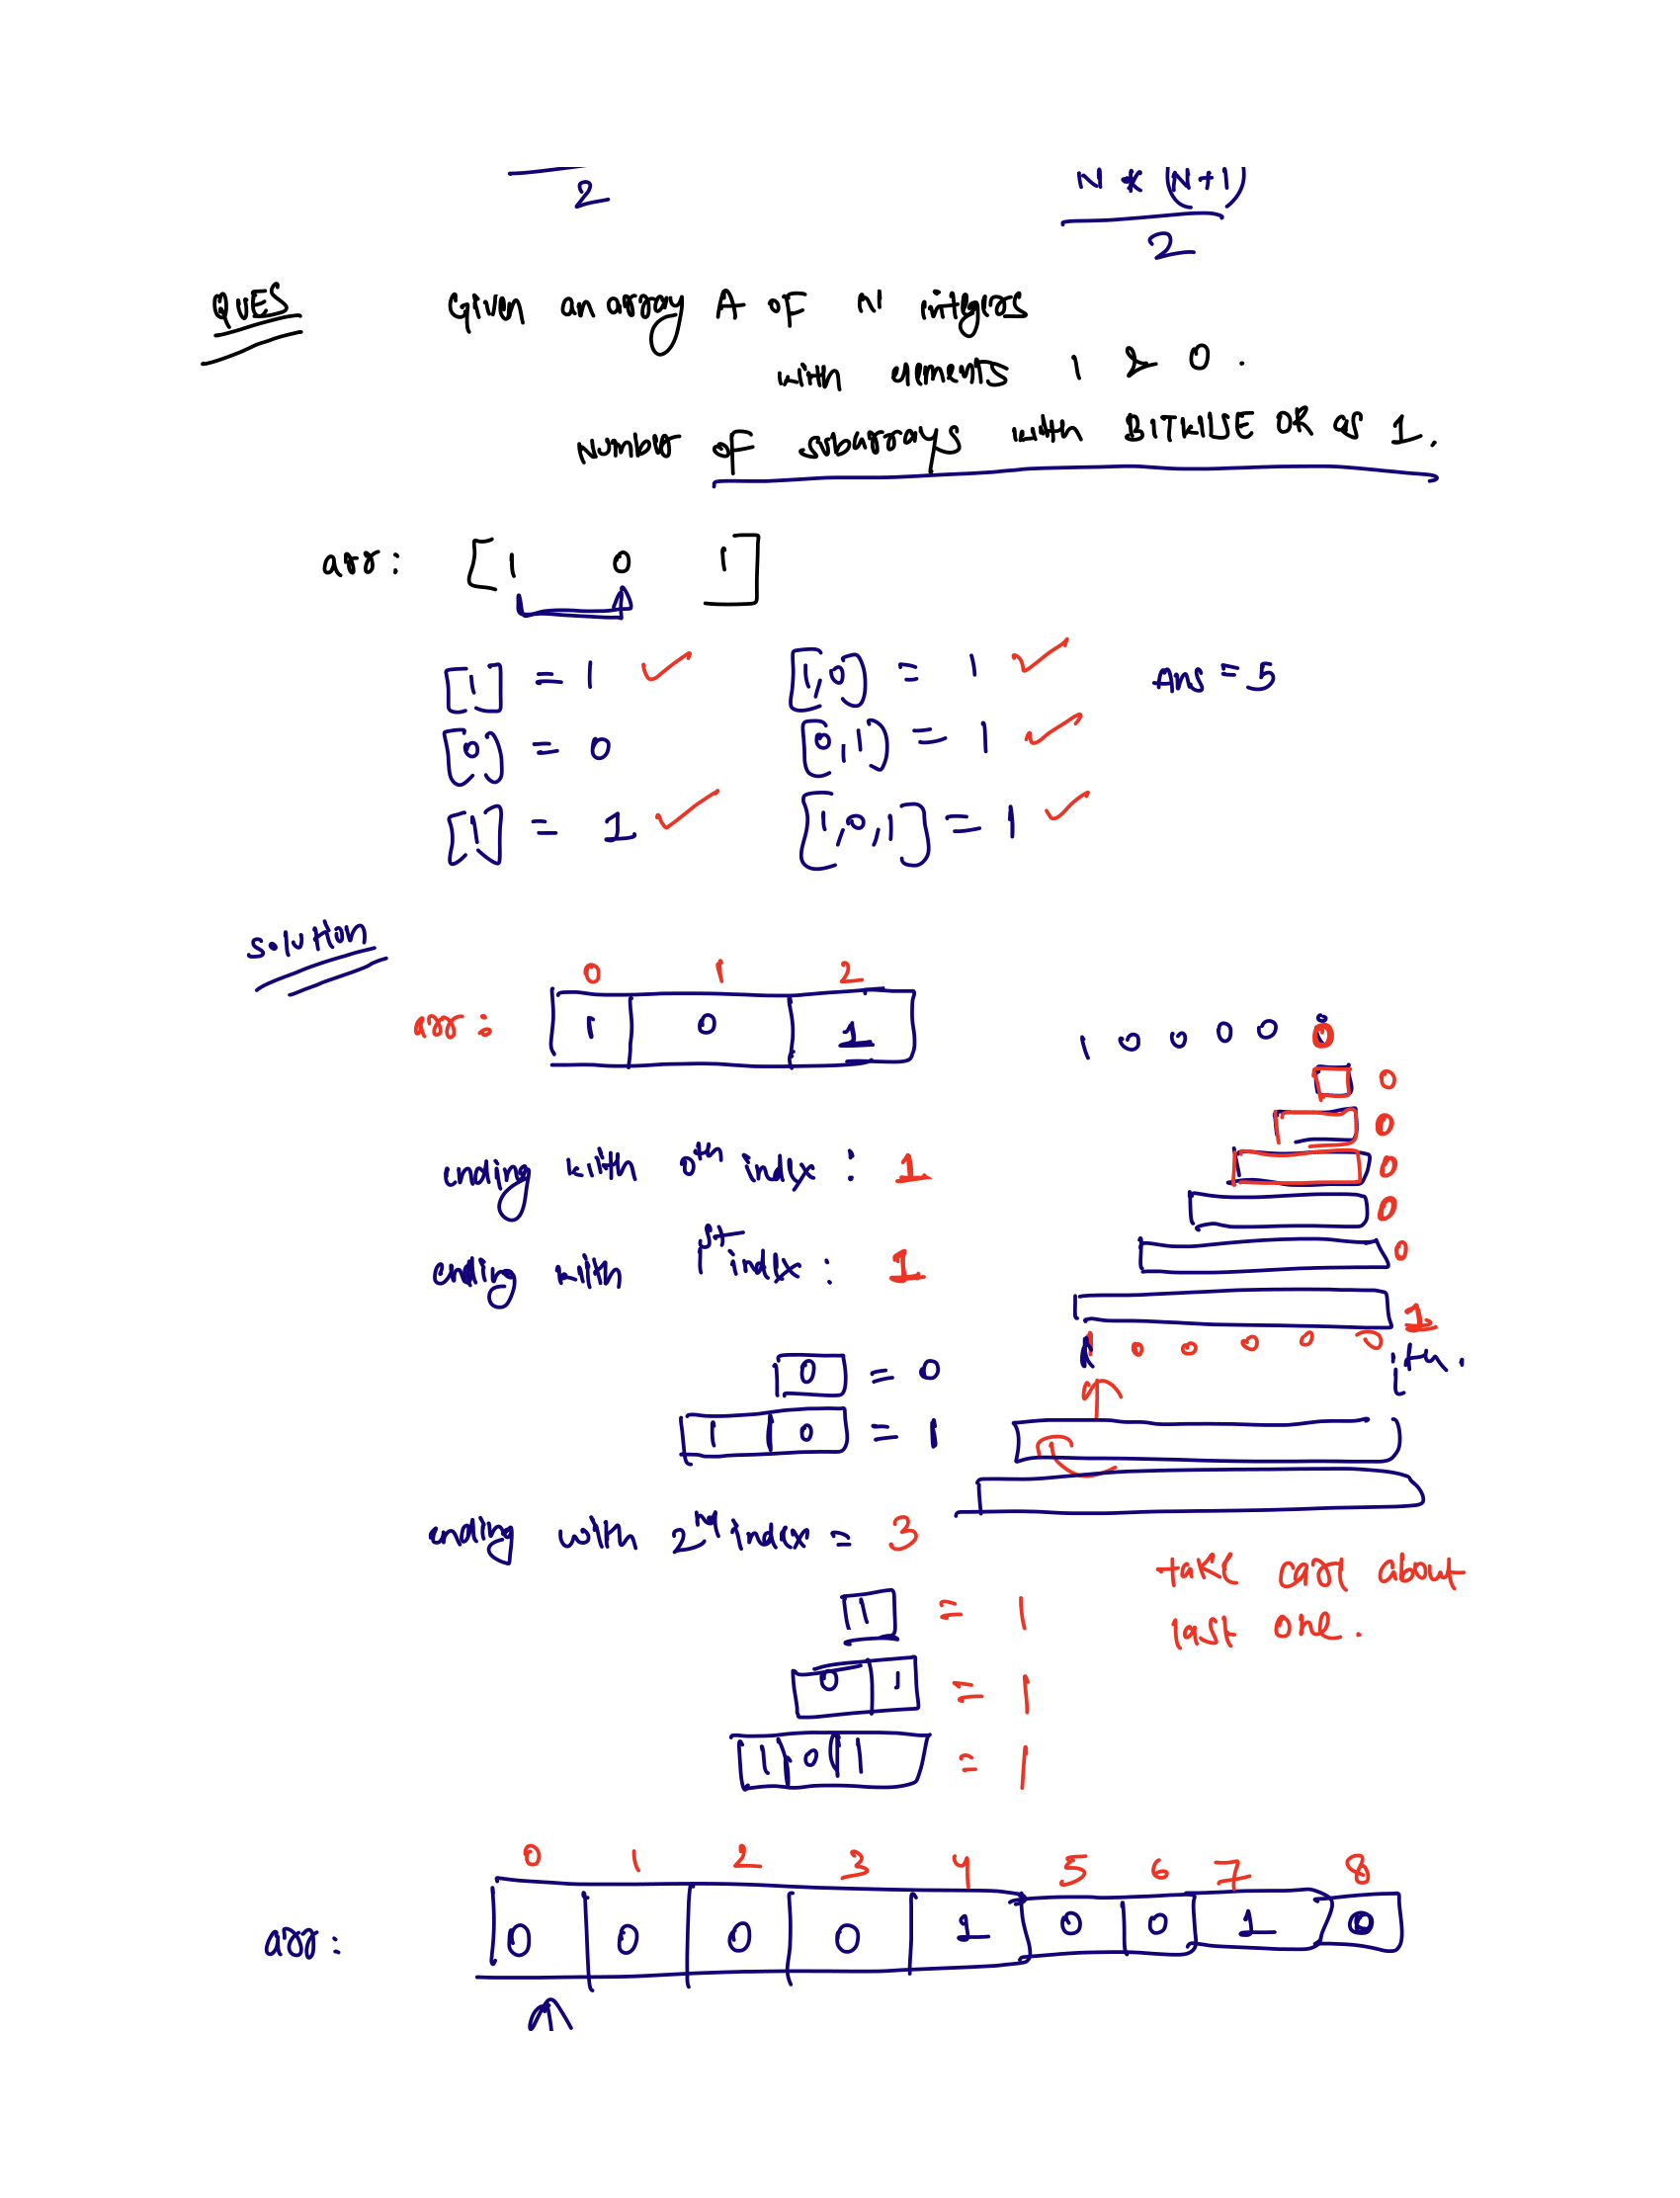 2
N * (N+1)
2
QUES Given an array A OF N integers
with elements 1 & 0.
Number of subarrays with BITWISE OR as 1.
arr: [1 0 1]
[1] = 1 ✓ [1,0] = 1 ✓ Ans = 5
[0] = 0 [0,1] = 1 ✓
[1] = 1 ✓ [1,0,1] = 1 ✓
solution
0 1 2
arr: 1 0 1
ending with 0th index: 1
ending with 1st index: 1
0 = 0
1 0 = 1
ending with 2nd index = 3
1 = 1
0 1 = 1
1 0 1 = 1
1 0 0 0 0 0
0
0
0
0
0
1
1 0 0 0 0 0
ith.
1
take care about
last one.
0 1 2 3 4 5 6 7 8
arr: 0 0 0 0 1 0 0 1 0